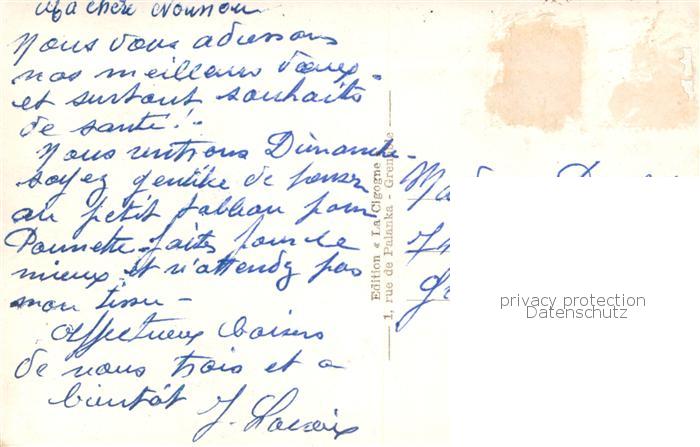 Ma chère Nounou
Nous vous adressons
nos meilleurs vœux
et surtout souhaits
de santé !
Nous rentrons Dimanche -
soyez gentille de penser
au petit tableau pour
faites pour le
mieux et n'attendez pas
mon tissu -
Affectueux baisers
de nous trois et à
bientôt J. Lacroix
Edition « La Cigogne »
1, rue de Palanka - Grenoble
privacy protection
Datenschutz